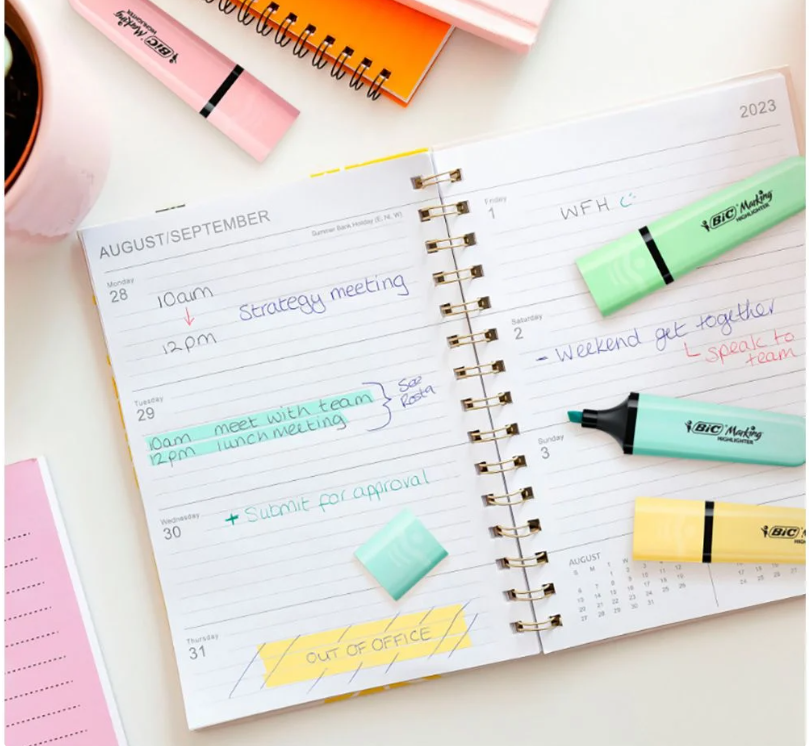 BIC Marking
HIGHLIGHTER
AUGUST/SEPTEMBER
Summer Bank Holiday (E, NI, W)
Monday
28
10am
↓
12pm
Strategy meeting
Tuesday
29
10am meet with team
12pm lunch meeting
See
Rosta
Wednesday
30
+ Submit for approval
Thursday
31
OUT OF OFFICE
2023
Friday
1
WFH
BIC Marking
HIGHLIGHTER
Saturday
2
- Weekend get together
speak to
team
BIC Marking
HIGHLIGHTER
Sunday
3
BIC
HIGH
AUGUST